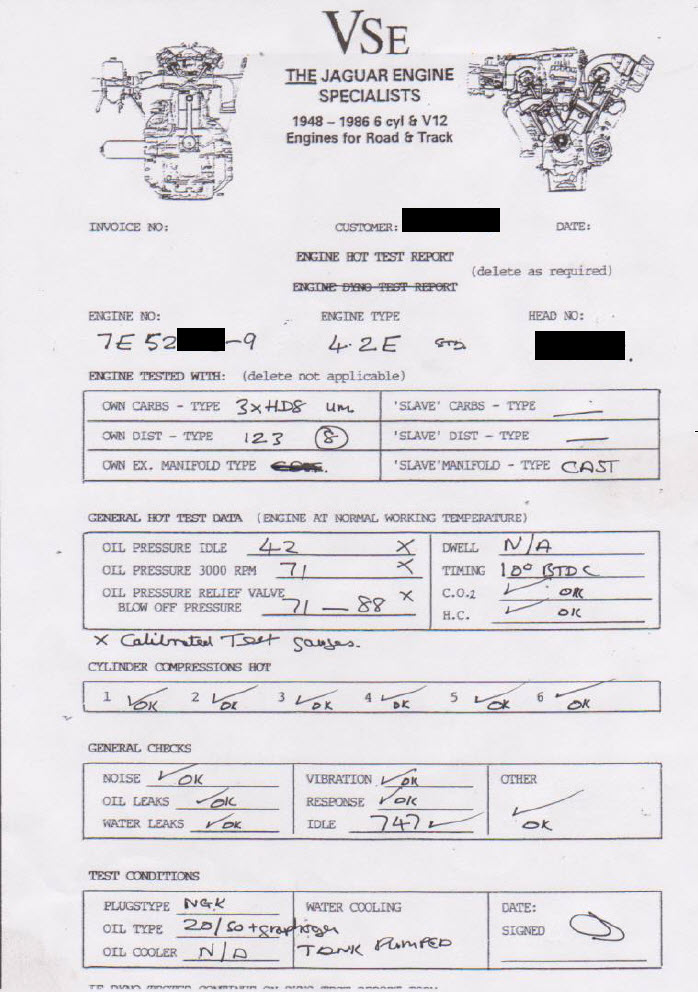 VSE
THE JAGUAR ENGINE
SPECIALISTS
1948 – 1986 6 cyl & V12
Engines for Road & Track
INVOICE NO: CUSTOMER: DATE:
ENGINE HOT TEST REPORT
(delete as required)
ENGINE DYNO TEST REPORT
ENGINE NO: ENGINE TYPE HEAD NO:
7E 52 -9 4.2E STD
ENGINE TESTED WITH: (delete not applicable)
OWN CARBS - TYPE 3xHD8 'SLAVE' CARBS - TYPE —
OWN DIST - TYPE 123 (8) 'SLAVE' DIST - TYPE —
OWN EX. MANIFOLD TYPE 'SLAVE'MANIFOLD - TYPE CAST
GENERAL HOT TEST DATA (ENGINE AT NORMAL WORKING TEMPERATURE)
OIL PRESSURE IDLE 42 X DWELL N/A
OIL PRESSURE 3000 RPM 71 X TIMING 10° BTDC
OIL PRESSURE RELIEF VALVE X C.O.2 ✓ OK
BLOW OFF PRESSURE 71 — 88 H.C. ✓ OK
X Calibrated Test gauges.
CYLINDER COMPRESSIONS HOT
1 ✓ OK 2 ✓ OK 3 ✓ OK 4 ✓ OK 5 ✓ OK 6 ✓ OK
GENERAL CHECKS
NOISE ✓ OK VIBRATION ✓ OK OTHER
OIL LEAKS ✓ OK RESPONSE ✓ OK ✓
WATER LEAKS ✓ OK IDLE 747 ✓ OK
TEST CONDITIONS
PLUGSTYPE NGK WATER COOLING DATE:
OIL TYPE 20/50 + SIGNED
OIL COOLER N/A TANK PUMPED